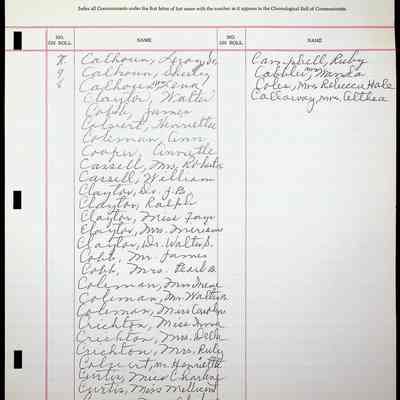 Index all Communicants under the first letter of last name with the number as it appears in the Chronological Roll of Communicants.
NO. ON ROLL
NAME
8 Calhoun, Leroy Sr.
9 Calhoun, Shirley
8 Calhoun, Lena
Clayton, Walter
Cobb, James
Colvert, Henrietta
Coleman, Ann
Cooper, Annette
Cassell, Mrs. Roberta
Cassell, William
Clayton, Dr. J.B.
Clayton, Ralph
Clayton, Miss Faye
Clayton, Mrs. Miriam
Clayton, Dr. Walter S.
Cobb, Mr. James
Cobb, Mrs. Pearl B.
Coleman, Mrs Irene
Coleman, Mr. Walter
Coleman, Miss Carolyn
Crichton, Miss Anna
Crichton, Mrs. Della
Crichton, Mrs. Ruby
Colvert, Mrs. Henrietta
Curtis, Miss Charlene
Curtis, Miss Millicent
NO. ON ROLL
NAME
Campbell, Ruby
Mrs Wanda
Coles, Mrs Rebecca Hale
Callaway, Mrs. Althea